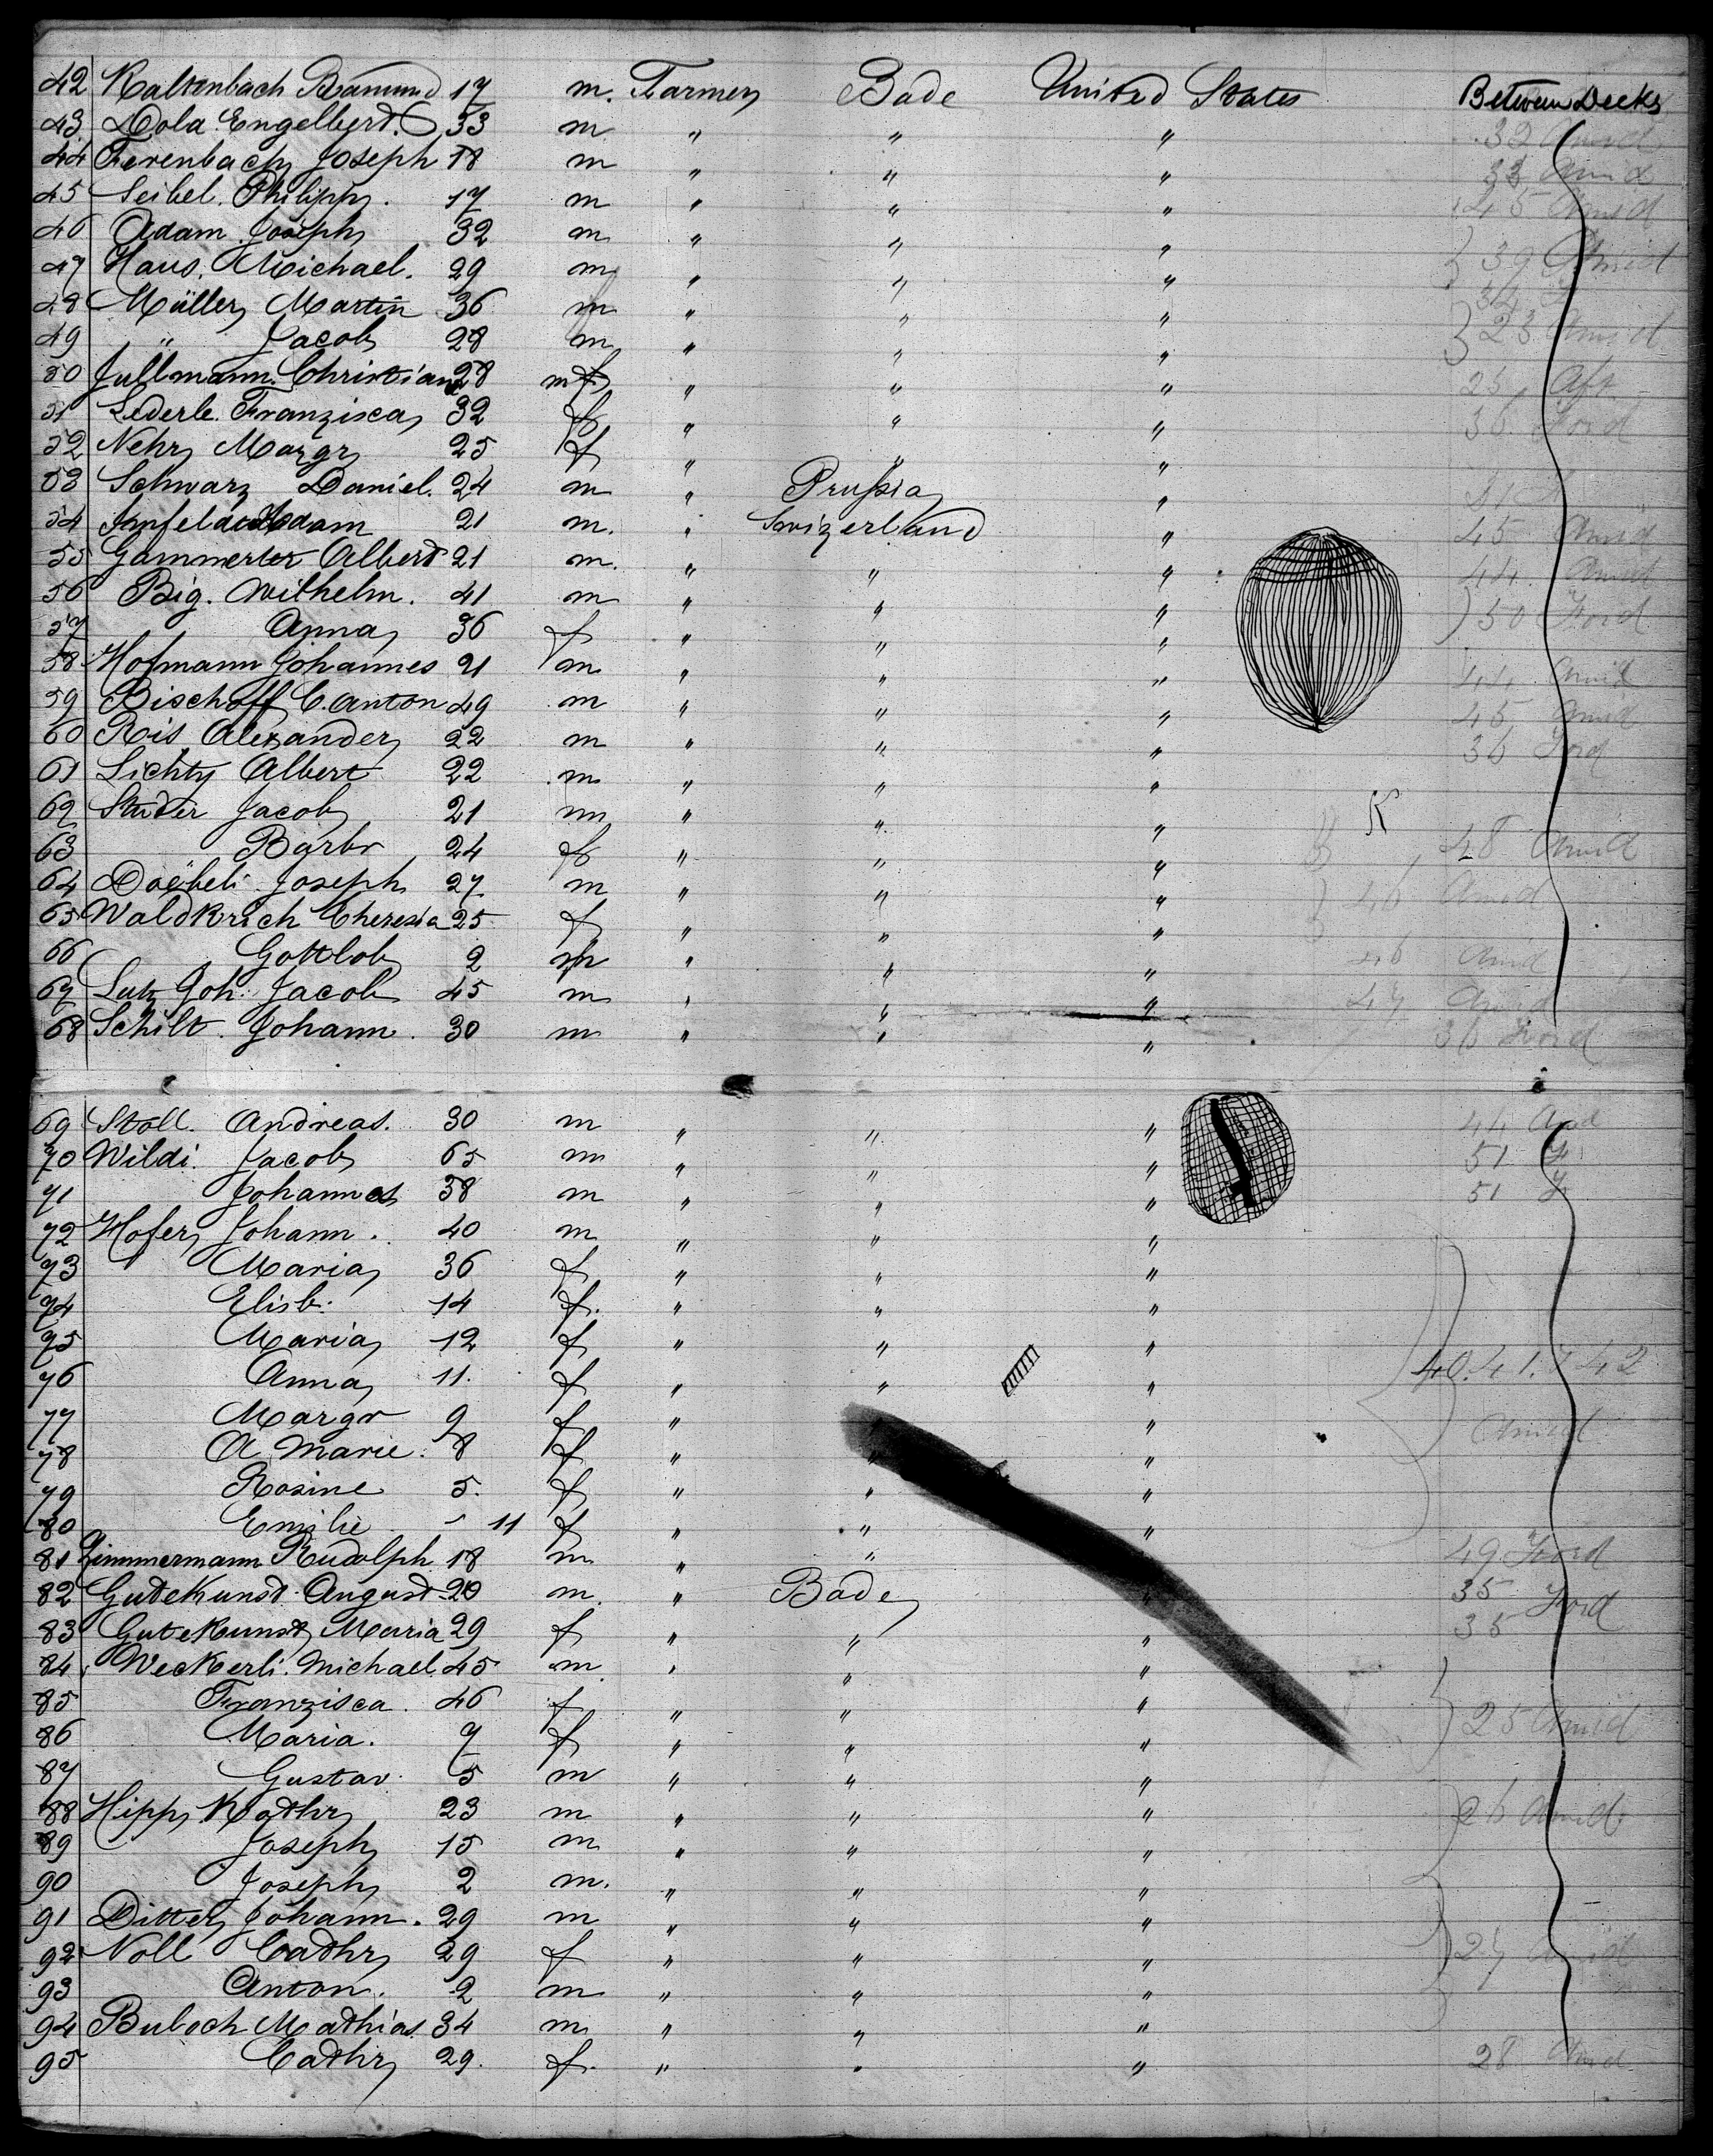 42 Kaltenbach Ramund 17 m. Farmer Bade United States Between Decks
43 Dola Engelberd. 33 m " " " 32 Amid
44 Ferenbach Joseph 18 m " " " 33 Amid
45 Seibel. Philipp. 17 m " " " 45 Amid
46 Adam Joseph 32 m " " "
47 Haus. Michael. 29 m " " " 39 Amid
48 Müller Martin 36 m " " " 34
49 " Jacob 28 m " " " 23 Amid
50 Jullmann. Christian 28 m f " " " 25 Aft
51 Lederle Franzisca 32 f " " " 36 Ford
52 Nehr Margr 25 f " " "
53 Schwarz Daniel. 24 m " Prussia "
54 Adam 21 m. " Swizerland " 45 Amid
55 Gammerter Albert 21 m. " " " 44 Amid
56 Big. Wilhelm. 41 m " " " 50 Ford
57 Anna 36 f " " "
58 Hofmann Johannes 21 m " " " 44 Amid
59 Bischoff C. Anton 49 m " " " 45 Amid
60 Ris Alexander 22 m " " " 36 Ford
61 Lichty Albert 22 m " " "
62 Studer Jacob 21 m " " " K
63 Barbr 24 f " " " 48 Amid
64 Doëbeli Joseph 27 m " " " 46 Amid
65 Waldkrich Theresia 25 f " " "
66 Gottlob 2 m " " " 46 Amid
67 Lutz Joh. Jacob 45 m " " " 47 Amid
68 Schilt. Johann. 30 m " " " 36 Ford
69 Stoll. Andreas. 30 m " " " 44 Amd
70 Wildi. Jacob 65 m " " " 51 F
71 Johannes 38 m " " " 51 F
72 Hofer Johann. 40 m " " "
73 Maria 36 f " " "
74 Elisb. 14 f. " " "
75 Maria 12 f " " "
76 Anna 11. f " " " 40. 41. 42
77 Margr 9 f " " " Amid
78 A Marie. 8 f " " "
79 Rosine 5. f " " "
80 Emilie - 11 f " " "
81 Zimmermann Rudolph 18 m " " 49 Ford
82 Gutekunst August 29 m. " Bade " 35 Ford
83 Gutekunst Maria 29 f " " " 35
84 Weckerli. Michael. 45 m " " "
85 Franzisca. 46 f " " "
86 Maria. 7 f " " " 25 Amid
87 Gustav 5 m " " "
88 Hipp Kathr 23 m " " " 26 Amid.
89 Joseph 15 m " " "
90 Joseph 2 m. " " "
91 Ditter Johann. 29 m " " "
92 Noll Cathr 29 f " " " 27 Amid
93 Anton. 2 m " " "
94 Buloch Mathias 34 m " " "
95 Cathr 29. f. " " " 28 Amid